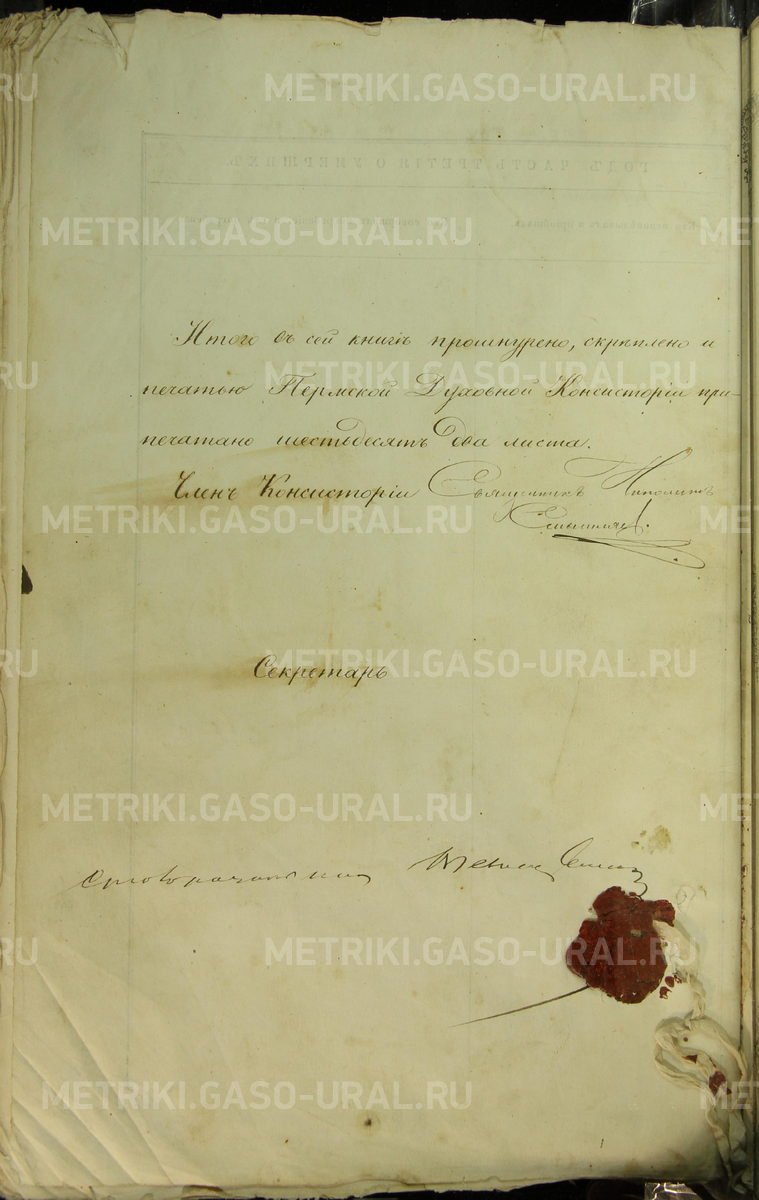 METRIKI.GASO-URAL.RU
ГОДЪ ЧАСТЬ ТРЕТІЯ О УМЕРШИХЪ.
METRIKI.GASO-URAL.RU
Итого въ сей книгѣ прошнурено, скрѣплено и
METRIKI.GASO-URAL.RU
печатью Пермской Духовной Консисторіи при-
печатано шестьдесятъ два листа.
Членъ Консисторіи Священникъ
METRIKI.GASO-URAL.RU
METRIKI.GASO-URAL.RU
Секретарь
METRIKI.GASO-URAL.RU
Столоначальникъ
METRIKI.GASO-URAL.RU
METRIKI.GASO-URAL.RU